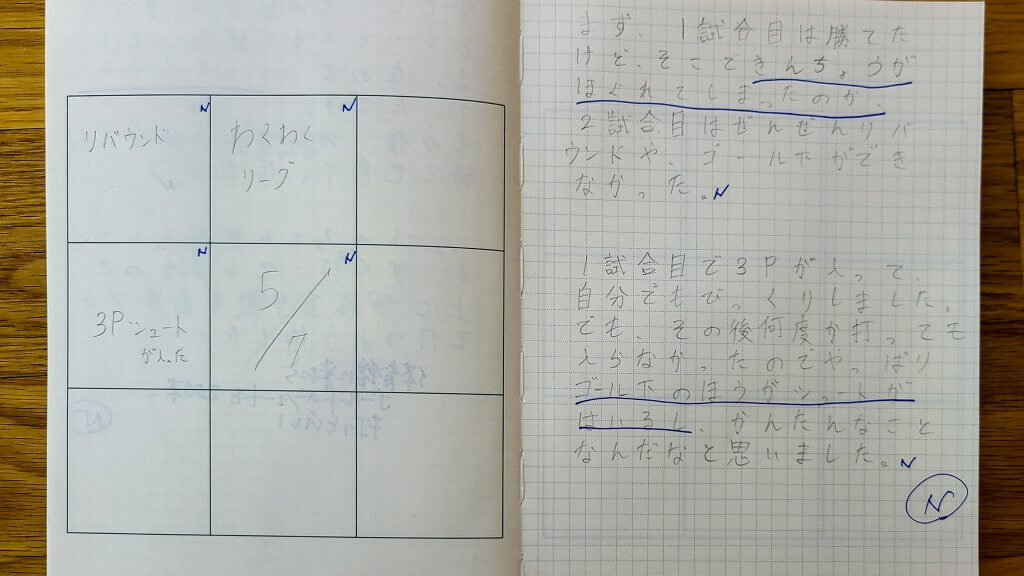 リバウンド
わくわく
リーグ
3P シュート
が入った
5/7
まず、1試合目は勝てた
けど、そこできんちょうが
ほぐれてしまったのか、
2試合目はぜんぜんリバ
ウンドや、ゴール下ができ
なかった。N
1試合目で3Pが入って、
自分でもびっくりしました。
でも、その後何度か打っても
入らなかったのでやっぱり
ゴール下のほうがシュートが
はいるし、かんたんなこと
なんだなと思いました。N
N